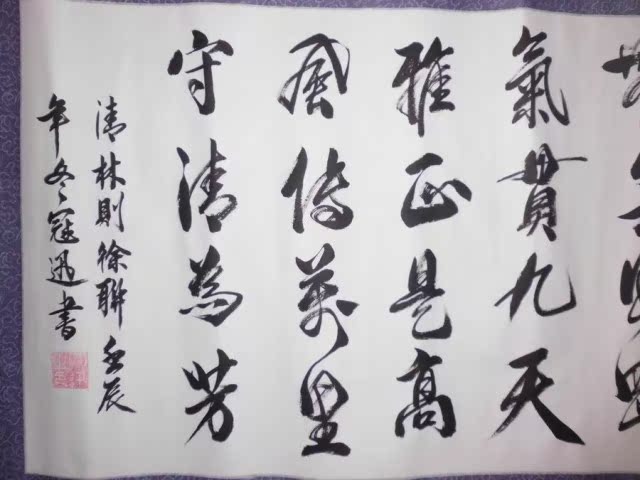 氣貫九天
雅正是高
風傳萬里
守清為芳
清林則徐聯 壬辰
年冬冠迅書